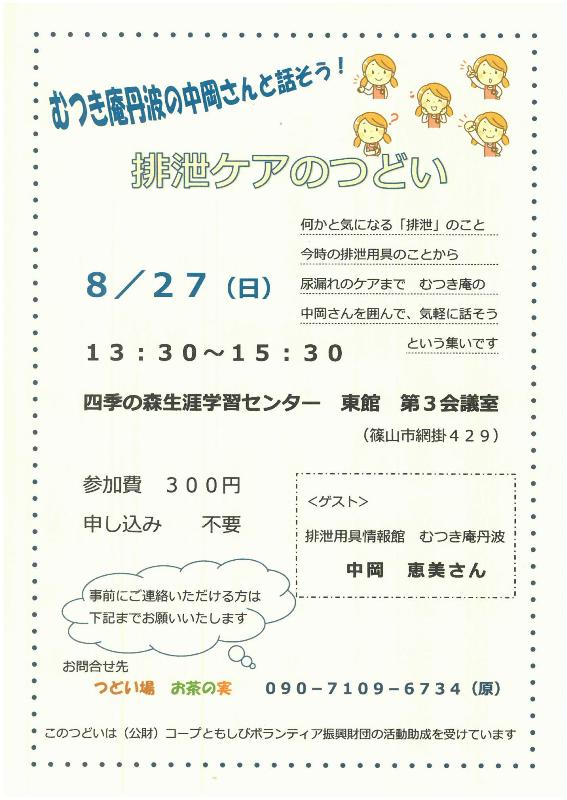 むつき庵丹波の中岡さんと話そう！
排泄ケアのつどい
何かと気になる「排泄」のこと
今時の排泄用具のことから
尿漏れのケアまで　むつき庵の
中岡さんを囲んで、気軽に話そう
という集いです
８／２７（日）
１３：３０～１５：３０
四季の森生涯学習センター　東館　第３会議室
（篠山市網掛４２９）
参加費　３００円
申し込み　　不要
＜ゲスト＞
排泄用具情報館　むつき庵丹波
中岡　恵美さん
事前にご連絡いただける方は
下記までお願いいたします
お問合せ先
つどい場　お茶の実　０９０－７１０９－６７３４（原）
このつどいは（公財）コープともしびボランティア振興財団の活動助成を受けています